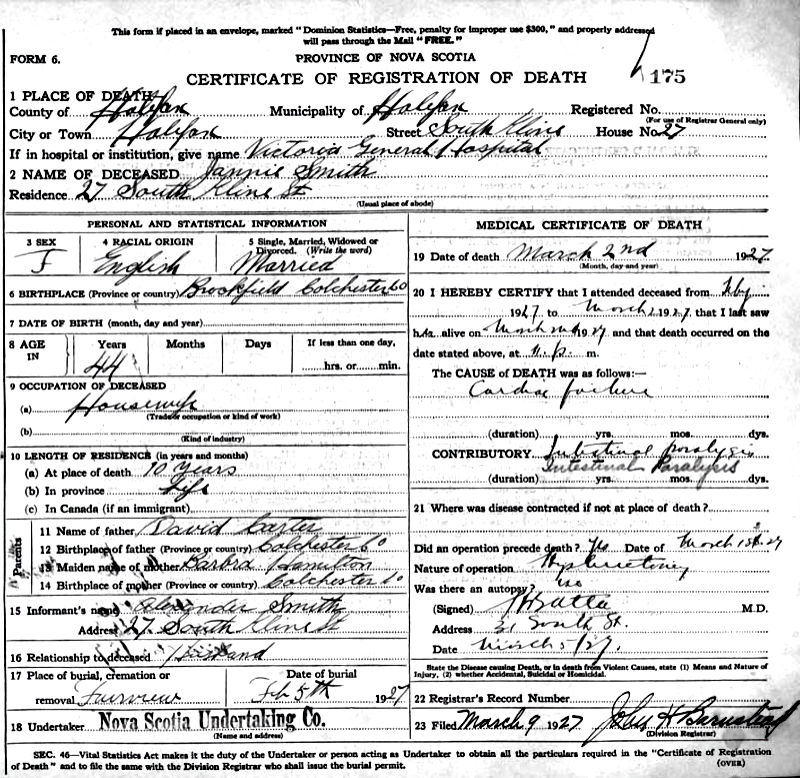 This form if placed in an envelope, marked "Dominion Statistics—Free, penalty for improper use $300," and properly addressed
will pass through the Mail "FREE."
FORM 6.
PROVINCE OF NOVA SCOTIA
CERTIFICATE OF REGISTRATION OF DEATH
175
1 PLACE OF DEATH
County of Halifax Municipality of Halifax Registered No.
(For use of Registrar General only)
City or Town Halifax Street South Kline House No. 27
If in hospital or institution, give name Victoria General Hospital
2 NAME OF DECEASED Jannie Smith
Residence 27 South Kline St
(Usual place of abode)
PERSONAL AND STATISTICAL INFORMATION
3 SEX 4 RACIAL ORIGIN 5 Single, Married, Widowed or
Divorced. (Write the word)
F English Married
6 BIRTHPLACE (Province or country) Brookfield Colchester Co
7 DATE OF BIRTH (month, day and year)
8 AGE IN Years Months Days If less than one day,
44 hrs. or min.
9 OCCUPATION OF DECEASED
(a) Housewife
(Trade or occupation or kind of work)
(b)
(Kind of industry)
10 LENGTH OF RESIDENCE (in years and months)
(a) At place of death 10 Years
(b) In province Life
(c) In Canada (if an immigrant)
Parents
11 Name of father David Carter
12 Birthplace of father (Province or country) Colchester Co
13 Maiden name of mother Barbra Hamilton
14 Birthplace of mother (Province or country) Colchester Co
15 Informant's name Alexander Smith
Address 27 South Kline St
16 Relationship to deceased Husband
17 Place of burial, cremation or Date of burial
removal Fairview Feb 5th 1927
18 Undertaker Nova Scotia Undertaking Co.
(Name and address)
MEDICAL CERTIFICATE OF DEATH
19 Date of death March 2nd 1927
(Month, day and year)
20 I HEREBY CERTIFY that I attended deceased from Feby
1927 to March 2 1927, that I last saw
her alive on March 2nd 1927 and that death occurred on the
date stated above, at p. m.
The CAUSE of DEATH was as follows:—
Cardiac failure
(duration) yrs. mos. dys.
CONTRIBUTORY. Intestinal paralysis
Intestinal Paralysis
(duration) yrs. mos. dys.
21 Where was disease contracted if not at place of death?
Did an operation precede death? Yes Date of March 1st 27
Nature of operation Hysterectomy
Was there an autopsy? no
(Signed) M.D.
Address 31 South St.
Date March 5/27.
State the Disease causing Death, or in death from Violent Causes, state (1) Means and Nature of
Injury, (2) whether Accidental, Suicidal or Homicidal.
22 Registrar's Record Number
23 Filed March 9 1927 John H Barnstead
(Division Registrar)
SEC. 46—Vital Statistics Act makes it the duty of the Undertaker or person acting as Undertaker to obtain all the particulars required in the "Certificate of Registration
of Death" and to file the same with the Division Registrar who shall issue the burial permit. (OVER)